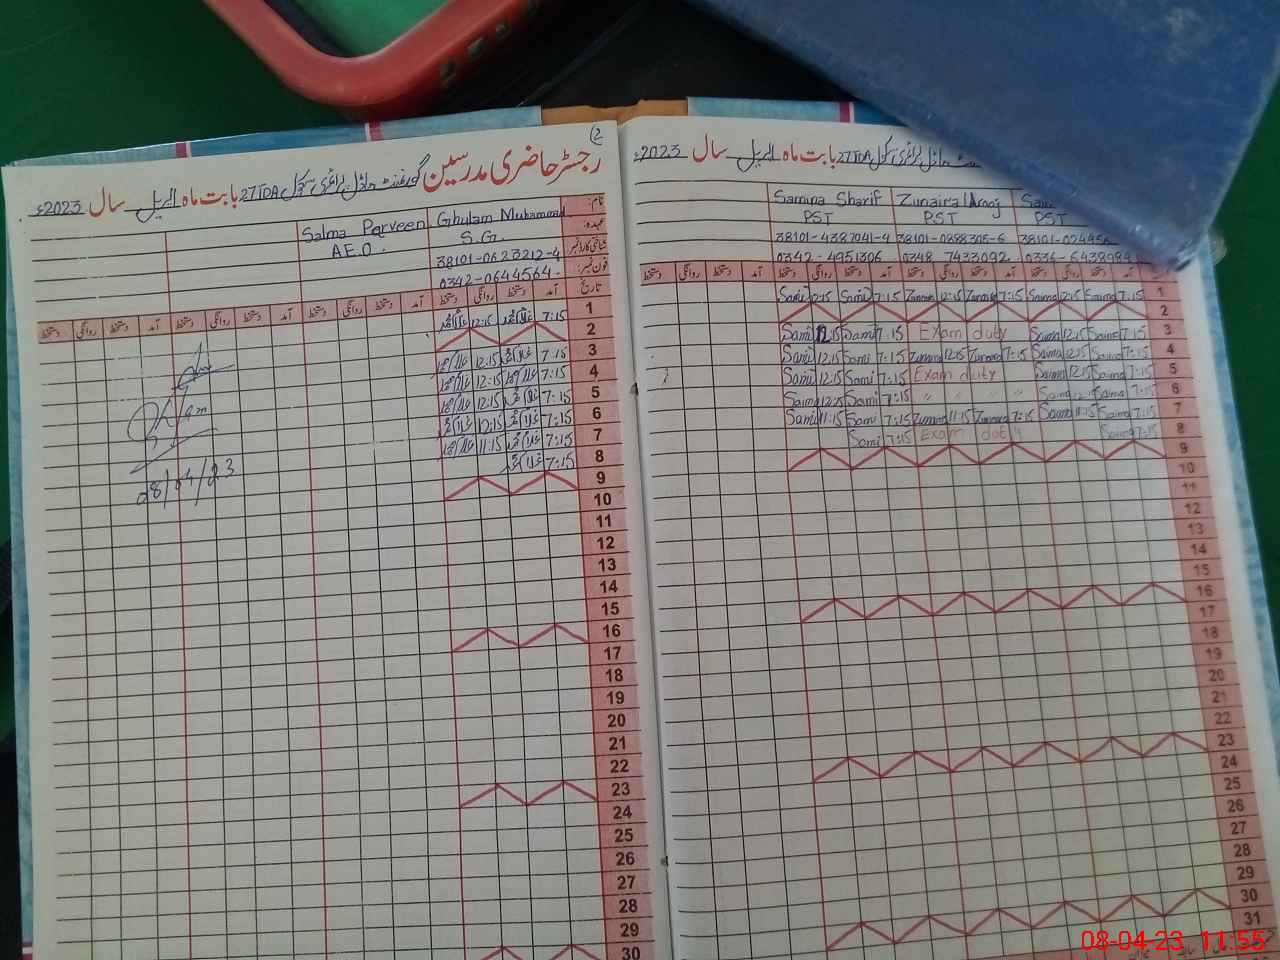 2
رجسٹر حاضری مدرسین گورنمنٹ ماڈل پرائمری سکول 27TDA بابت ماہ اپریل سال 2023ء
نام: Ghulam Muhammad Salma Parveen
عہدہ: S.G. A.E.O.
شناختی کارڈ نمبر 38101-0623212-4
فون نمبر: 0342-0644564
تاریخ آمد دستخط روانگی دستخط آمد دستخط روانگی دستخط آمد دستخط روانگی دستخط آمد دستخط روانگی دستخط
1 7:15 12:15
2
3 7:15 12:15
4 7:15 12:15
5 7:15 12:15
6 7:15 12:15
7 7:15 11:15
8 7:15
9
10
11
12
13
14
15
16
17
18
19
20
21
22
23
24
25
26
27
28
29
30
08/04/23
ماڈل پرائمری سکول 27TDA بابت ماہ اپریل سال 2023ء
Samina Sharif Zunaira Arooj
PST PST PST
38101-4387041-4 38101-0888305-6 38101-02445
0342-4951306 0348 7433092 0336-6438984
آمد دستخط روانگی دستخط آمد دستخط روانگی دستخط
1 Sami 12:15 Sami 7:15 Zunaira 12:15 Zunaira 7:15 Saima 12:15 Saima 7:15
2
3 Sami 12:15 Sami 7:15 Exam duty Saima 12:15 Saima 7:15
4 Sami 12:15 Sami 7:15 Zunaira 12:15 Zunaira 7:15 Saima 12:15 Saima 7:15
5 Sami 12:15 Sami 7:15 Exam duty Saima 12:15 Saima 7:15
6 Sami 12:15 Sami 7:15 " " " " Saima 12:15 Saima 7:15
7 Sami 11:15 Sami 7:15 Zunaira 11:15 Zunaira 7:15 Saima 11:15 Saima 7:15
8 Sami 7:15 Exam duty Saima 7:15
9
10
11
12
13
14
15
16
17
18
19
20
21
22
23
24
25
26
27
28
29
30
31
08-04-23 11:55